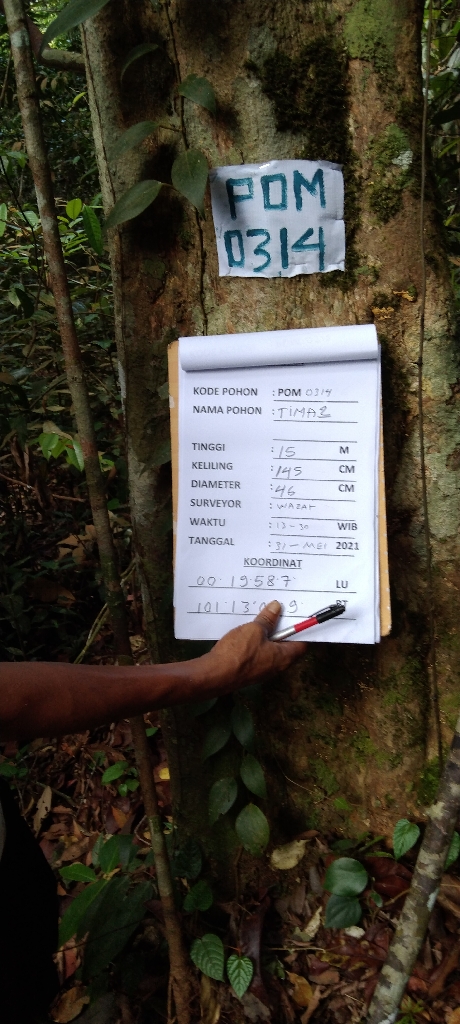 POM
0314
KODE POHON : POM 0314
NAMA POHON :
TINGGI : 15 M
KELILING : 145 CM
DIAMETER : 46 CM
SURVEYOR :
WAKTU : 13-30 WIB
TANGGAL : 31-MEI 2021
KOORDINAT
00° 19'58.7" LU
101°13'